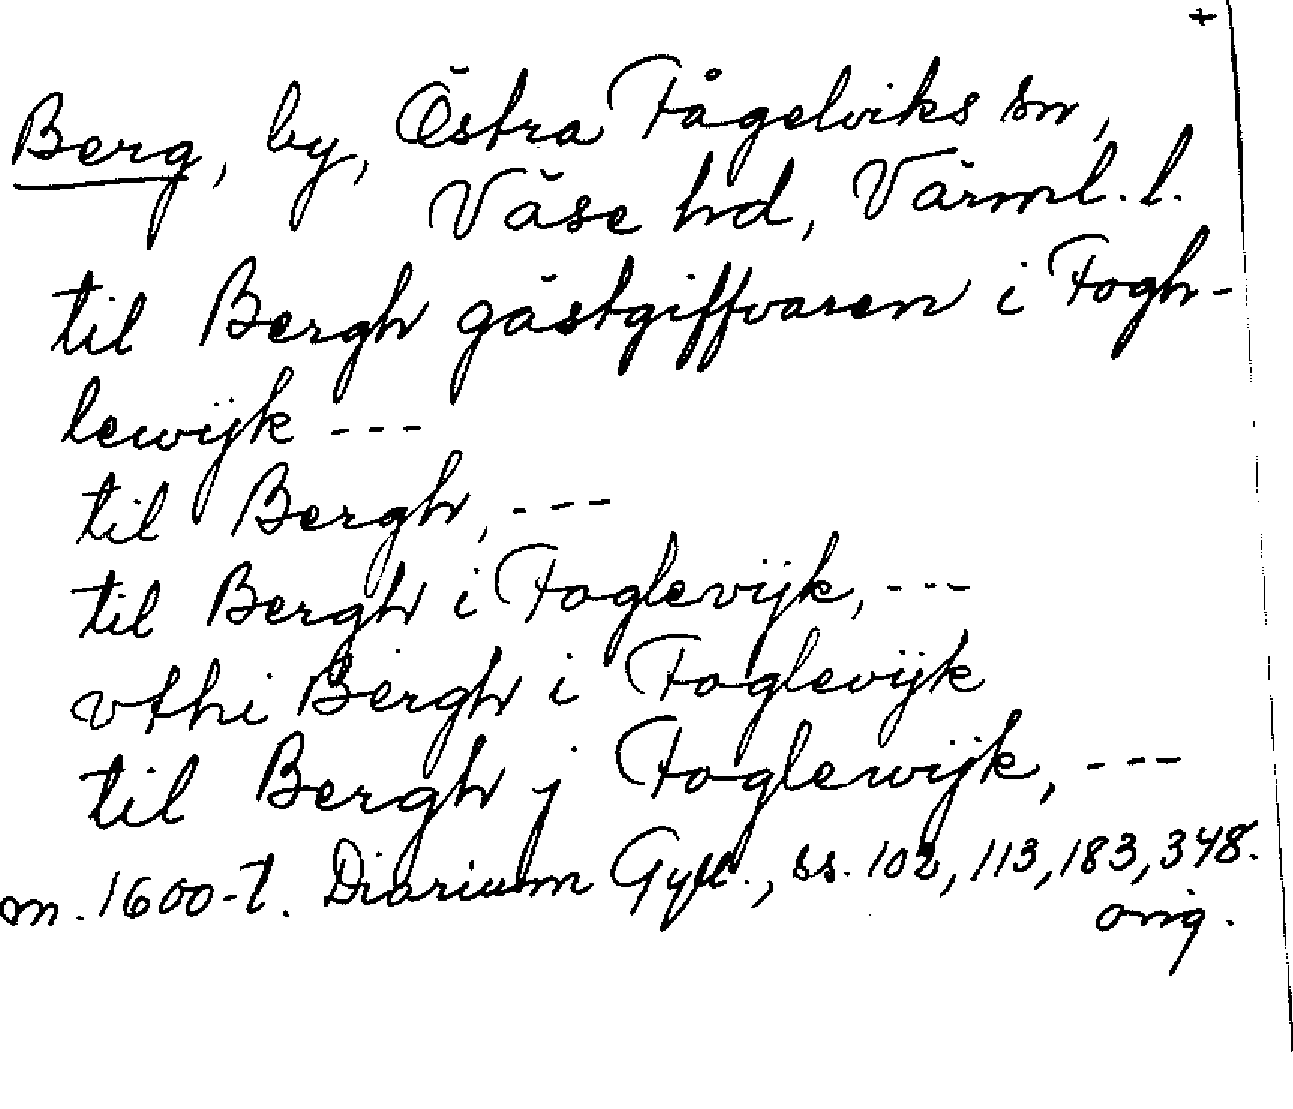 +
Berg, by, Östra Fågelviks sn,
Väse hd, Värml. l.
til Bergh gästgiffvaren i Fogh-
lewijk ---
til Bergh, ---
til Bergh i Foglevijk, ---
vthi Bergh i Foglevijk
til Bergh j Foglewijk, ---
m. 1600-t. Diarium Gyll., ss. 102, 113, 183, 348.
orig.